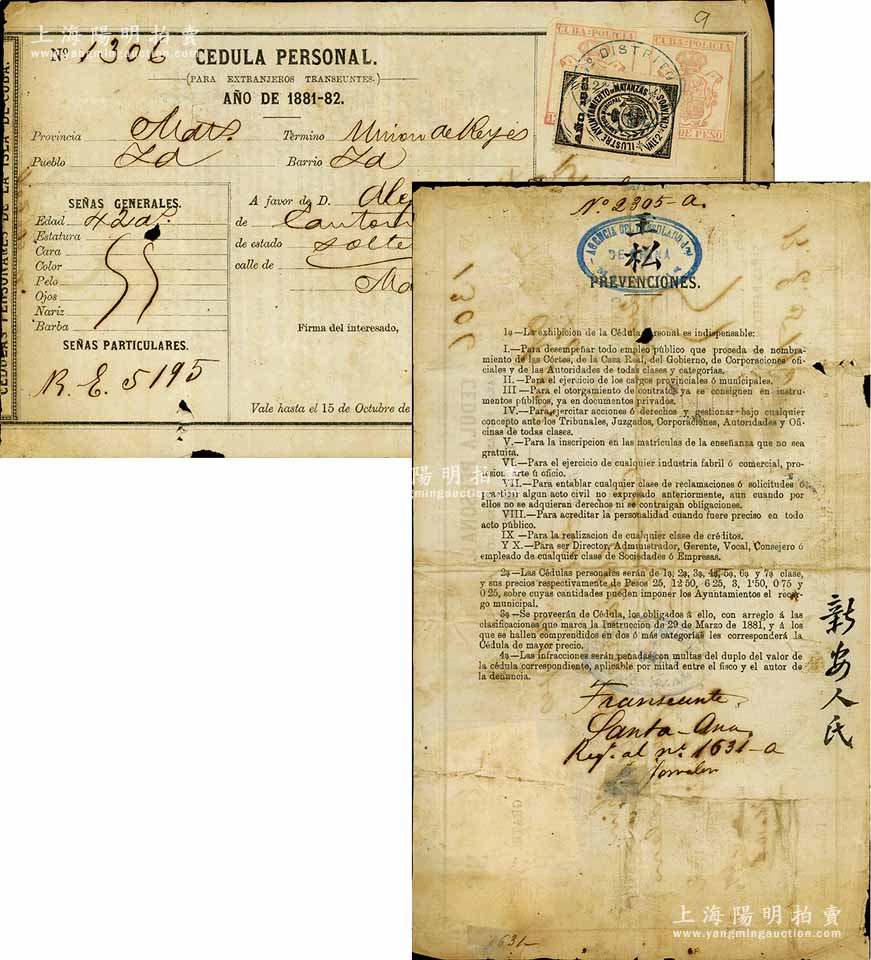 上海陽明拍賣
www.yangmingauction.com
Nº 1306
CEDULA PERSONAL.
(PARA EXTRANJEROS TRANSEUNTES.)
AÑO DE 1881-82.
9
CUBA-POLICIA
CUBA-POLICIA
DE PESO
DISTRITO
ILUSTRE AYUNTAMIENTO DE MATANZAS
Provincia Mats.
Término Union de Reyes
Pueblo Id
Barrio Id
CÉDULAS PERSONALES DE LA ISLA DE CUBA.
SEÑAS GENERALES.
Edad 42 as.
Estatura
Cara
Color
Pelo
Ojos
Nariz
Barba
SEÑAS PARTICULARES.
R. E. 5195
A favor de D. Ale
de Canton
de estado solte
calle de
Ma
Firma del interesado,
Vale hasta el 15 de Octubre de
Nº 2305-a.
王松
AGENCIA DEL CONSULADO
PREVENCIONES.
1306
1ª—La exhibicion de la Cédula personal es indispensable:
I.—Para desempeñar todo empleo público que proceda de nombra-
miento de las Córtes, de la Casa Real, del Gobierno, de Corporaciones ofi-
ciales y de las Autoridades de todas clases y categorías.
II.—Para el ejercicio de los cargos provinciales ó municipales.
III—Para el otorgamiento de contratos ya se consignen en instru-
mentos públicos, ya en documentos privados.
IV.—Para ejercitar acciones ó derechos y gestionar bajo cualquier
concepto ante los Tribunales, Juzgados, Corporaciones, Autoridades y Ofi-
cinas de todas clases.
V.—Para la inscripcion en las matrículas de la enseñanza que no sea
gratuita.
VI.—Para el ejercicio de cualquier industria fabril ó comercial, pro-
fesion, arte ú oficio.
VII.—Para entablar cualquier clase de reclamaciones ó solicitudes ó
practicar algun acto civil no expresado anteriormente, aun cuando por
ellos no se adquieran derechos ni se contraigan obligaciones.
VIII.—Para acreditar la personalidad cuando fuere preciso en todo
acto público.
IX—Para la realizacion de cualquier clase de créditos.
Y X.—Para ser Director, Administrador, Gerente, Vocal, Consejero ó
empleado de cualquier clase de Sociedades ó Empresas.
2ª—Las Cédulas personales serán de 1ª, 2ª, 3ª, 4ª, 5ª, 6ª y 7ª clase,
y sus precios respectivamente de Pesos 25, 12'50, 6'25, 3, 1'50, 0'75 y
0'25, sobre cuyas cantidades pueden imponer los Ayuntamientos el recar-
go municipal.
3ª—Se proveerán de Cédula, los obligados á ello, con arreglo á las
clasificaciones que marca la Instruccion de 29 de Marzo de 1881, y á los
que se hallen comprendidos en dos ó más categorías les corresponderá la
Cédula de mayor precio.
4ª—Las infracciones serán penadas con multas del duplo del valor de
la cédula correspondiente, aplicable por mitad entre el fisco y el autor de
la denuncia.
新安人氏
Transeunte.
Santa-Ana.
Regº. al nº. 1631-a
1631-
上海陽明拍賣
www.yangmingauction.com